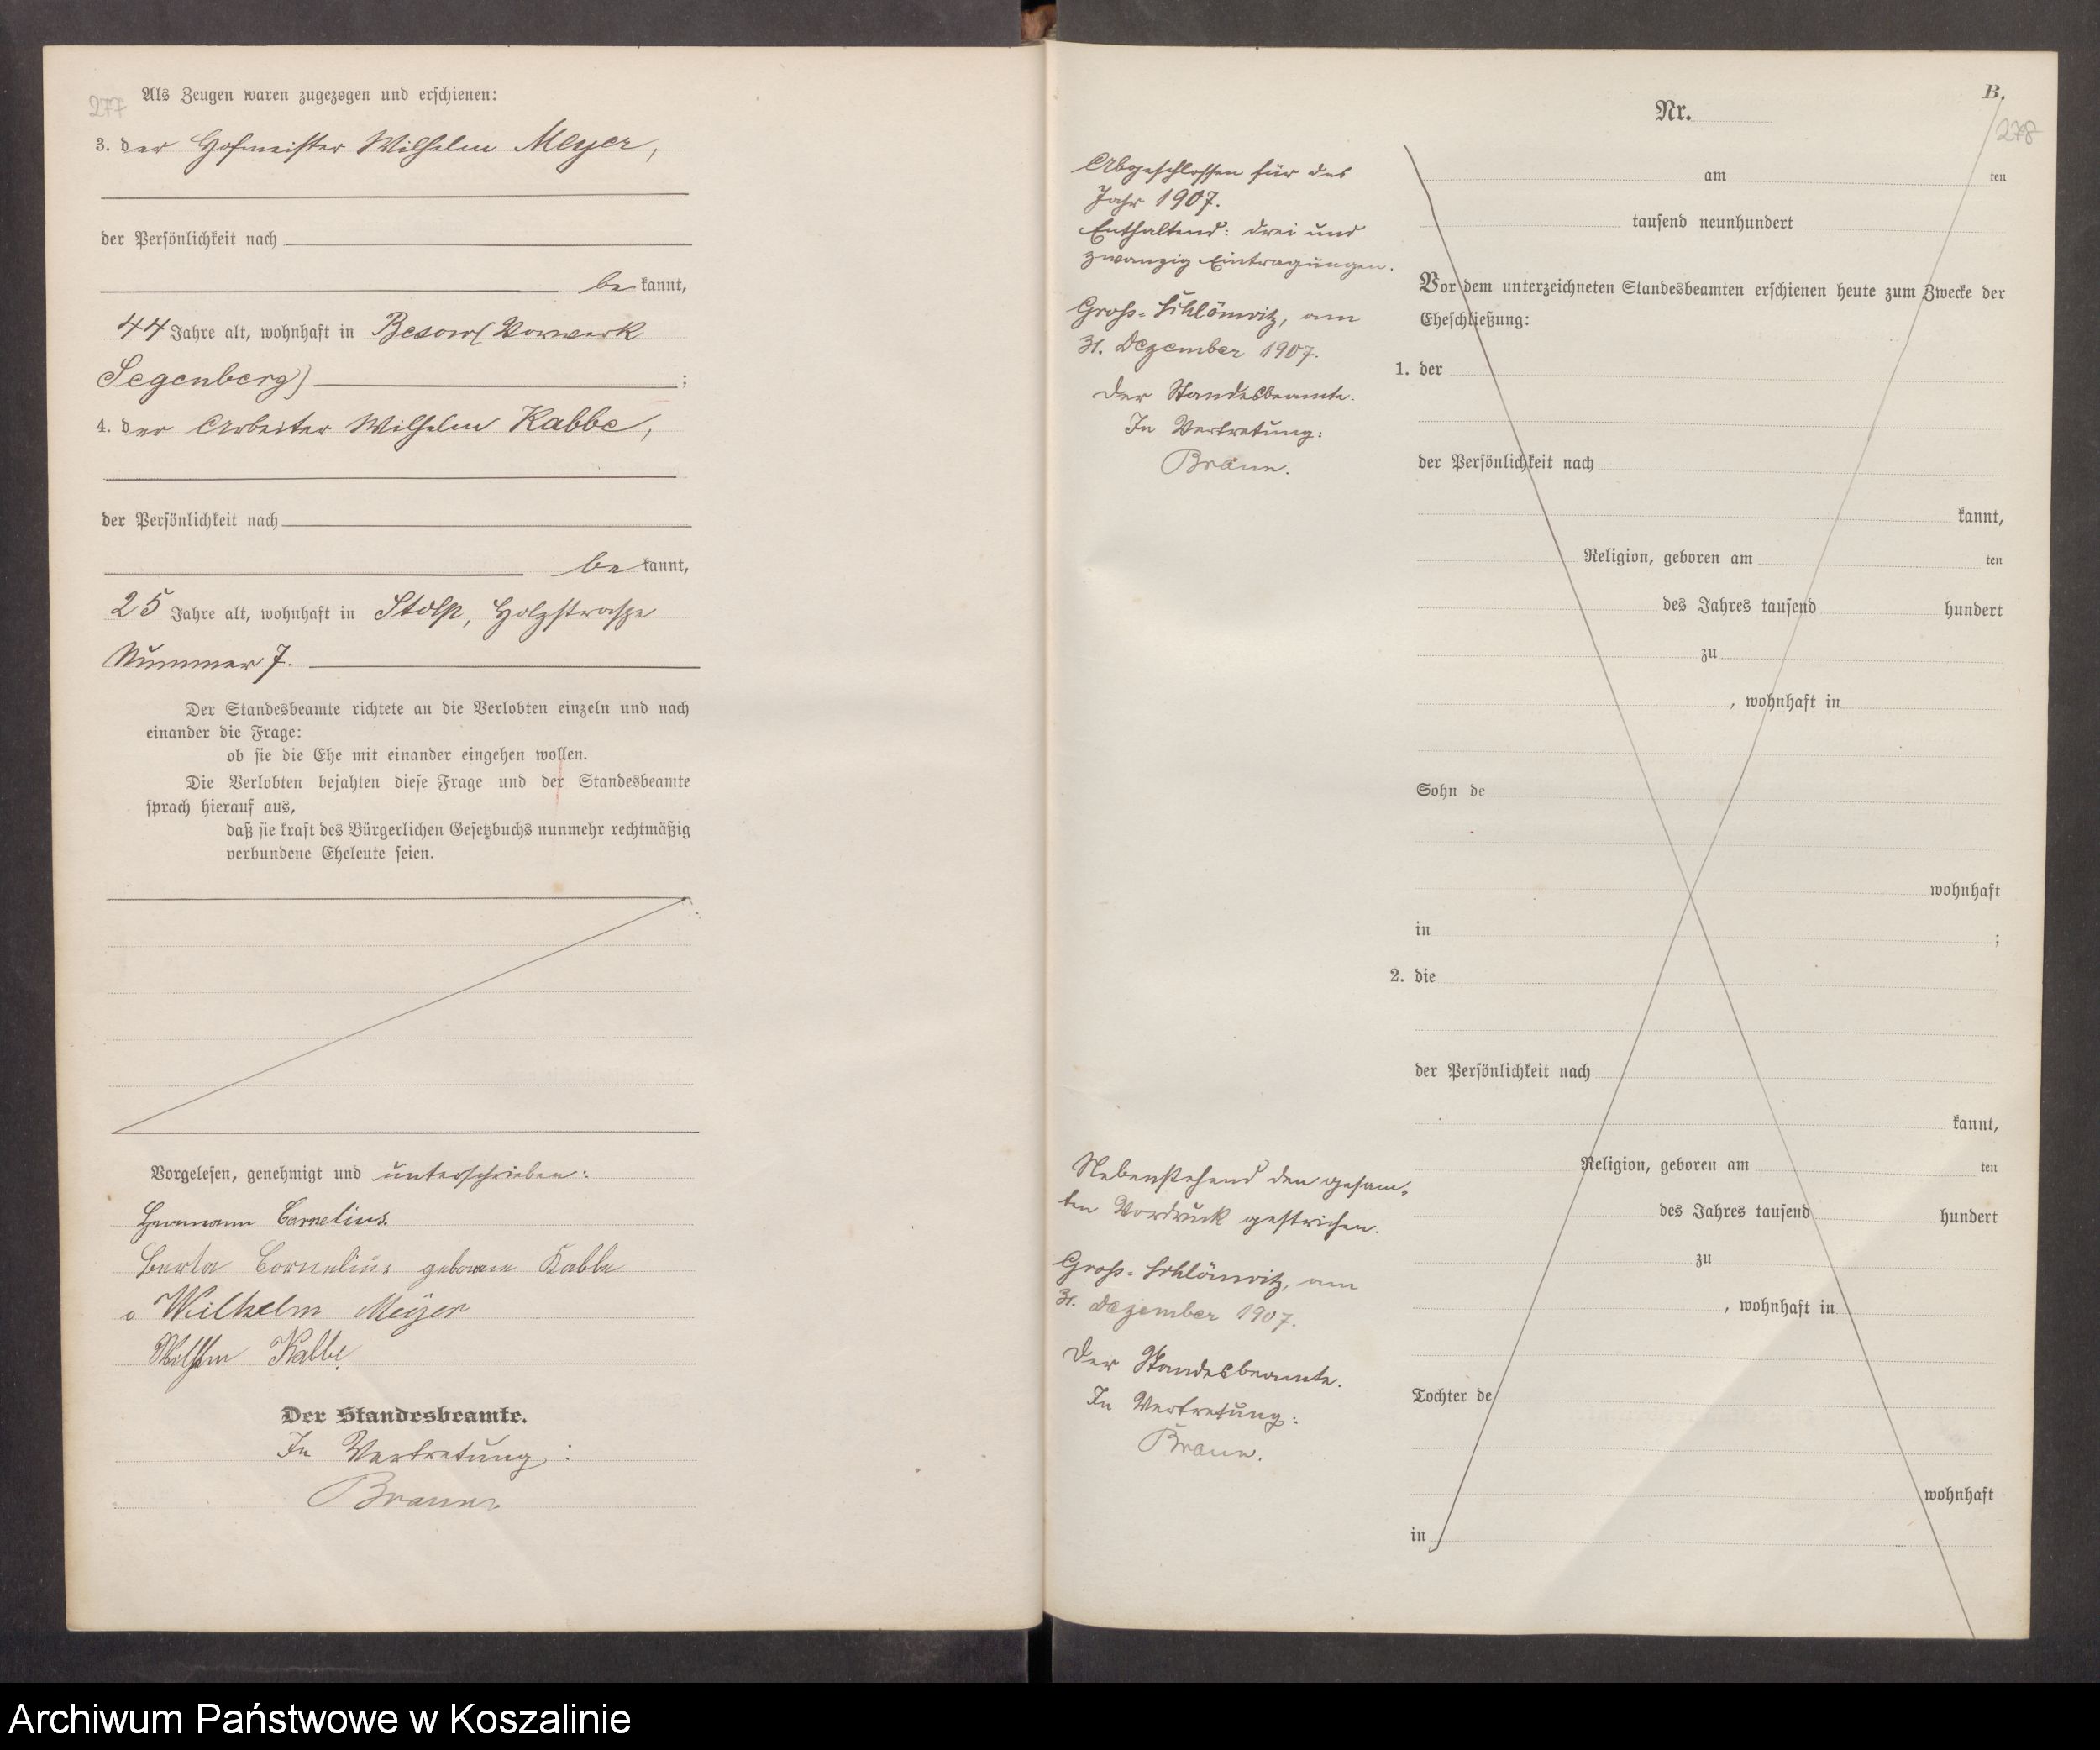 277
Als Zeugen waren zugezogen und erschienen:
3. der Hofmeister Wilhelm Meyer,
der Persönlichkeit nach
be kannt,
44 Jahre alt, wohnhaft in Besow (Vorwerk
Segenberg) ;
4. der Arbeiter Wilhelm Kabbe,
der Persönlichkeit nach
be kannt,
25 Jahre alt, wohnhaft in Stolp, Holzstraße
Nummer 7.
Der Standesbeamte richtete an die Verlobten einzeln und nach
einander die Frage:
ob sie die Ehe mit einander eingehen wollen.
Die Verlobten bejahten diese Frage und der Standesbeamte
sprach hierauf aus,
daß sie kraft des Bürgerlichen Gesetzbuchs nunmehr rechtmäßig
verbundene Eheleute seien.
Vorgelesen, genehmigt und unterschrieben:
Hermann Cornelius.
Berta Cornelius geborene Kabbe
Wilhelm Meyer
Wilhelm Kabbe.
Der Standesbeamte.
In Vertretung:
Braun.
B.
278
Nr.
Abgeschlossen für das
Jahr 1907.
Enthaltend: drei und
zwanzig Eintragungen.
Groß-Schlönwitz, am
31. Dezember 1907.
Der Standesbeamte.
In Vertretung:
Braun.
Nebenstehend den gesam-
ten Vordruck gestrichen.
Groß-Schlönwitz, am
31. Dezember 1907.
Der Standesbeamte.
In Vertretung:
Braun.
am ten
tausend neunhundert
Vor dem unterzeichneten Standesbeamten erschienen heute zum Zwecke der
Eheschließung:
1. der
der Persönlichkeit nach
kannt,
Religion, geboren am ten
des Jahres tausend hundert
zu
, wohnhaft in
Sohn de
wohnhaft
in ;
2. die
der Persönlichkeit nach
kannt,
Religion, geboren am ten
des Jahres tausend hundert
zu
, wohnhaft in
Tochter de
wohnhaft
in
Archiwum Państwowe w Koszalinie